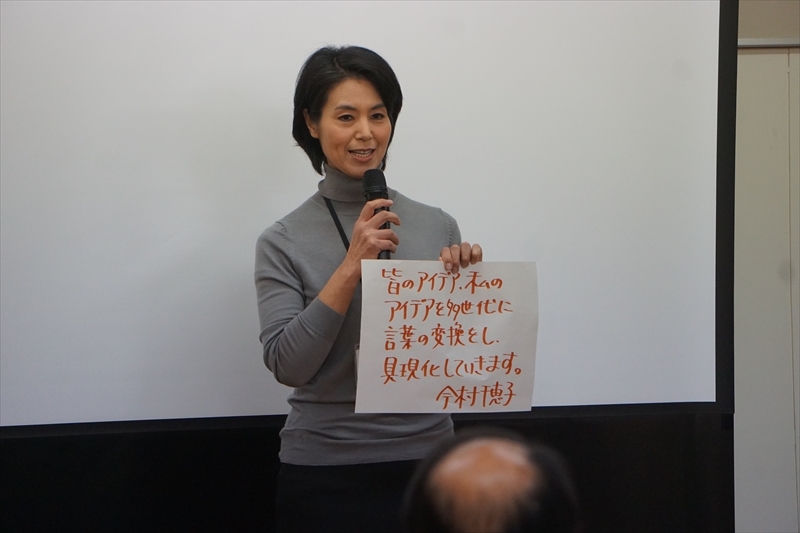 皆のアイデア、私の
アイデアを多世代に
言葉の変換をし、
具現化していきます。
今村千恵子